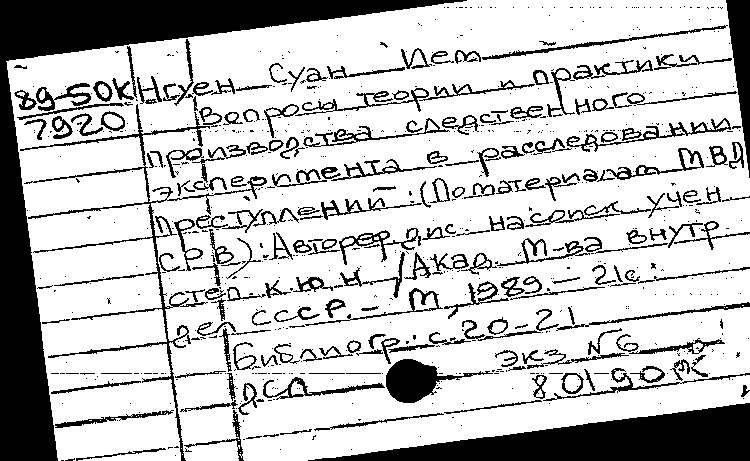 89-50К Нгуен Суан Йем
7920 Вопросы теории и практики
производства следственного
эксперимента в расследовании
преступлений: (По материалам МВД
СРВ): Автореф дис. на соиск учен
степ. к.ю.н / Акад. М-ва внутр
дел СССР. - М, 1989. - 21с:
Библиогр.: с. 20-21
ДСП экз N 6
8.01.90